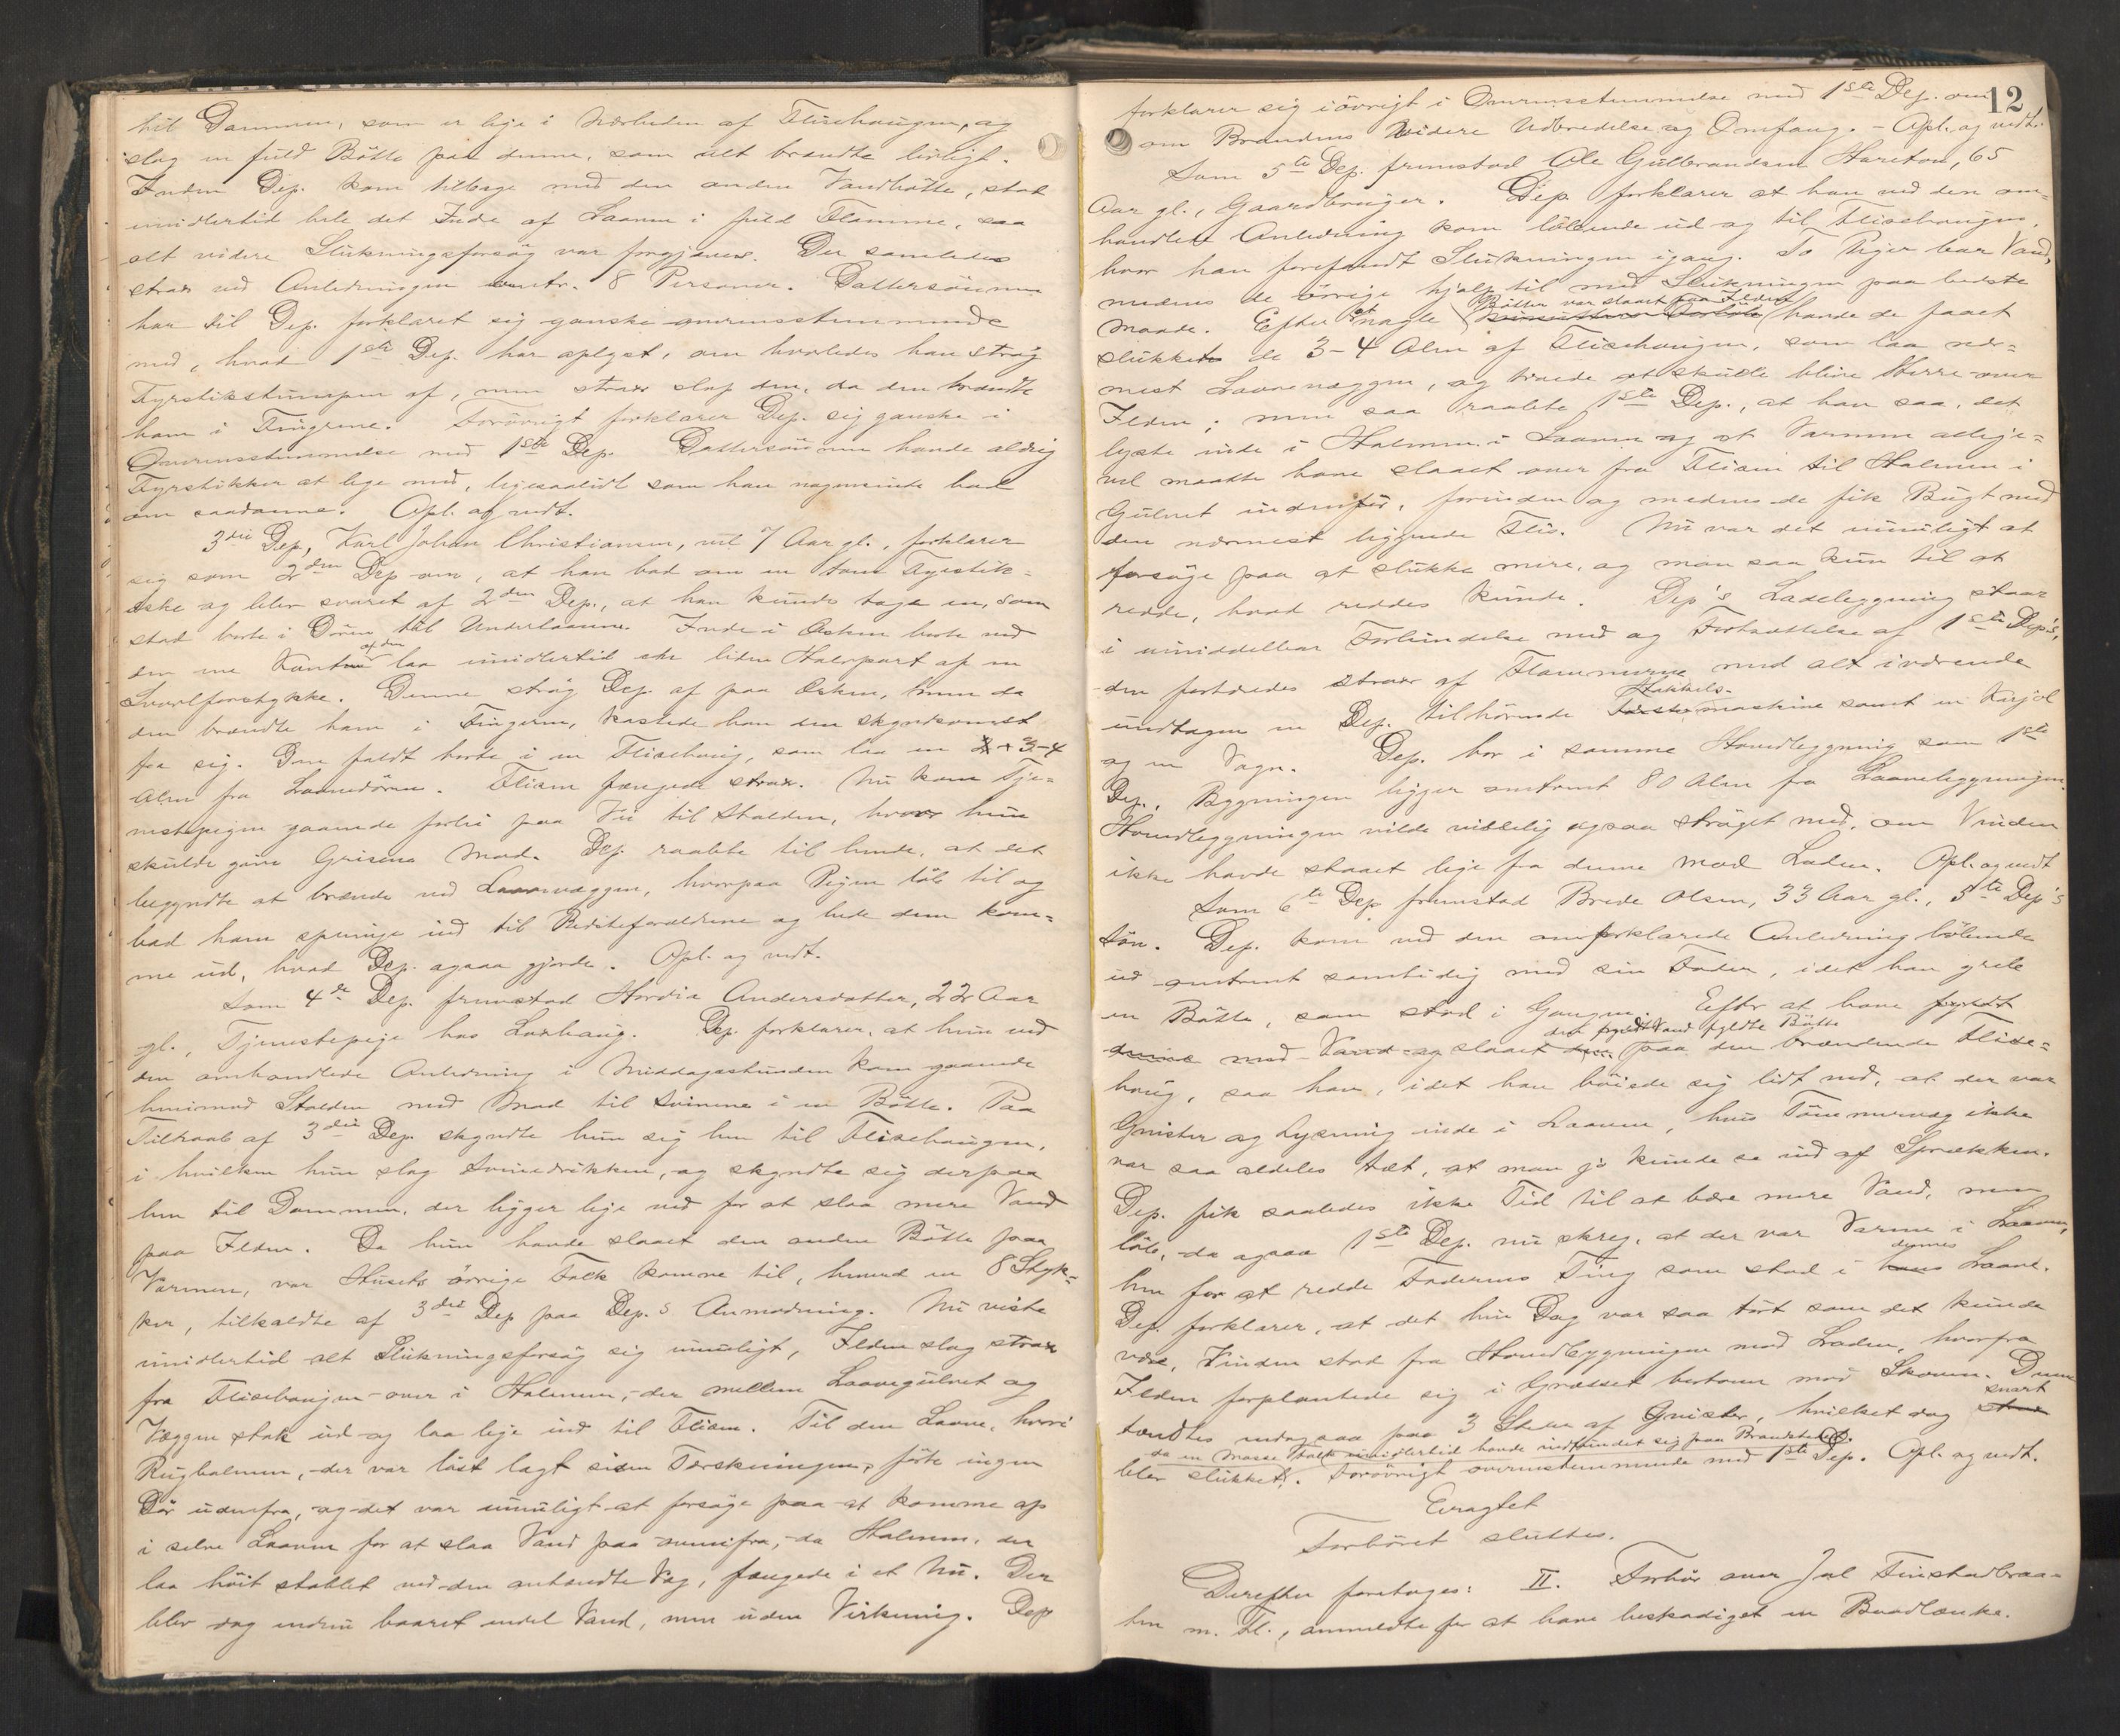 til Dammen, som er lige i Nærheden af Flisehaugen, og
slog en fuld Bötte paa denne, som alt brændte livligt.
Inden Dep. kom tilbage med den anden Vandbötte, stod
imidlertid hele det Indre af Laaven i fuld Flamme, saa
alt videre Slukningsforsög var forgjæves. Der samledes
strax ved Anledningen omtr. 8 Personer. Dattersönnen
har til Dep. forklaret sig ganske overensstemmende
med, hvad 1ste Dep. har oplyst, om hvorledes han strög
Fyrstikstumpen af, men strax slap den, da den brændte
ham i Fingrene. Forövrigt forklarer Dep. sig ganske i
Overensstemmelse med 1ste Dep. Dattersönnen havde aldrig
Fyrstikker at lege med, ligesaalidt som han nogensinde bad
om saadanne. Opl. og vedt.
3die Dep, Karl Johan Christiansen, vel 7 Aar gl., forklarer
sig som 2den Dep om, at han bad om en tom Fyrstik-
æske og blev svaret af 2den Dep., at han kunde tage en, som
stod borte i Dören til Underlaaven. Inde i Æsken borte ved
den ene Kanten af den laa imidlertid en liden Halvpart af en
Svovlforstykke. Denne strög Dep. af paa Æsken, men da
den brændte ham i Fingeren, kastede han den skyndsomst
fra sig. Den faldt borte i en Flisehaug, som laa en 3-4
Alen fra Laavedören. Flisen fængede strax. Nu kom Tje-
nestepigen gaaende forbi paa Vei til Stalden, hvor hun
skulde give Grisene Mad. Dep. raabte til hende, at det
begyndte at brænde ved Laavevæggen, hvorpaa Pigen löb til og
bad ham springe ind til Bedsteforældrene og bede dem kom-
me ud, hvad Dep. ogsaa gjorde. Opl. og vedt.
Som 4de Dep. fremstod Andersdatter, 22 Aar
gl., Tjenestepige hos Loxhaug. Dep. forklarer, at hun ved
den omhandlede Anledning i Middagsstunden kom gaaende
henimod Stalden med Mad til Svinene i en Bötte. Paa
Tilraab af 3die Dep. skyndte hun sig hen til Flisehaugen,
i hvilken hun slog Svinedrikken, og skyndte sig derpaa
hen til Dammen, der ligger lige ved for at slaa mere Vand
paa Ilden. Da hun havde slaaet den anden Bötte paa
Varmen, var Husets övrige Folk komne til, henved en 8 Styk-
ker, tilkaldte af 3die Dep paa Dep.s Anmodning. Nu viste
imidlertid alt Slukningsforsög sig umuligt, Ilden slog strax
fra Flisehaugen over i Halmen, der mellem Laavegulvet og
Væggen stak ud og laa lige ind til Flisen. Til den Laave, hvori
Rughalmen, der var löst lagt siden Tærskningen, förte ingen
Dör udenfra, og det var umuligt at forsöge paa at komme op
i selve Laaven for at slaa Vand paa ovenifra, da Halmen, der
laa höit stablet ved den antændte Væg, fængede i et Nu. Der
blev dog endnu baaret endel Vand, men uden Virkning. Dep
12
forklarer sig iövrigt i Overensstemmelse med 1ste Dep. om
om Brandens videre Udbredelse og Omfang. - Opl. og vedt.
Som 5te Dep. fremstod Ole Gulbrandsen Hareton, 65
Aar gl., Gaardbruger. Dep. forklarer at han ved den om-
handlede Anledning kom löbende ud og til Flisehaugen,
hvor han forefandt Slukningen igang. To Piger bar Vand,
medens de övrige hjalp til med Slukningen paa bedste
Maade. Efter at nogle Bötter var slaaet paa Ilden havde de faaet
slukket de 3-4 Alen af Flisehaugen, som laa nær-
mest Laavevæggen, og troede at skulle blive Herre over
Ilden; men saa raabte 1ste Dep., at han saa, det
lyste inde i Halmen i Laaven og at Varmen allige-
vel maatte have slaaet over fra Flisen til Halmen i
Gulvet indenfor, forinden og medens de fik Bugt med
den nærmest liggende Flis. Nu var det umuligt at
forsöge paa at slukke mere, og man saa kun til at
redde, hvad reddes kunde. Dep's Ladebygning staar
i umiddelbar Forbindelse med og Fortsættelse af 1ste Dep's,
den fortæredes strax af Flammerne med alt iværende
undtagen en Dep. tilhörende Hakkels-maskine samt en Karjol
og en Vogn. Dep. bor i samme Hovedbygning som 1ste
Dep., Bygningen ligger omtrent 80 Alen fra Laavebygningen.
Hovedbygningen vilde visselig ogsaa ströget med, om Vinden
ikke havde staaet lige fra denne mod Laden. Opl. og vedt
Som 6te Dep. fremstod Brede Olsen, 33 Aar gl., 5te Dep's
Sön. Dep. kom ved den omforklarede Anledning löbende
ud omtrent samtidig med sin Fader, idet han greb
en Bötte, som stod i Gangen. Efter at have fyldt
denne med Vand og slaaet den med Vand fyldte Bötte paa den brændende Flise-
haug, saa han, idet han böiede sig lidt ned, at der var
Gnister og Lysning inde i Laaven, hvis Tömmervæg ikke
var saa aldeles tæt, at man jo kunde se ind af Sprækken.
Dep. fik saaledes ikke Tid til at bære mere Vand, men
löb, da ogsaa 1ste Dep. nu skreg, at der var Varme i Laaven,
hen for at redde Faderens Ting som stod i dennes Laave.
Dep. forklarer, at det hin Dag var saa tört som det kunde
være, Vinden stod fra Hovedbygningen mod Laden, hvorfra
Ilden forplantede sig i Græsset bortover mod Skoven. Denne
tændtes endogsaa paa 3 Steder af Gnister, hvilket dog snart
da en Masse Folk imidlertid havde indfundet sig paa Brandstedet.
blev slukket. Forövrigt overenstemmende med 1ste Dep. Opl. og vedt.
Eragtet
Forhöret sluttes.
Derefter foretoges: II. Forhör over Joh Finstadbraa-
ten m. Fl., anmeldte for at have beskadiget en Baadlænke.